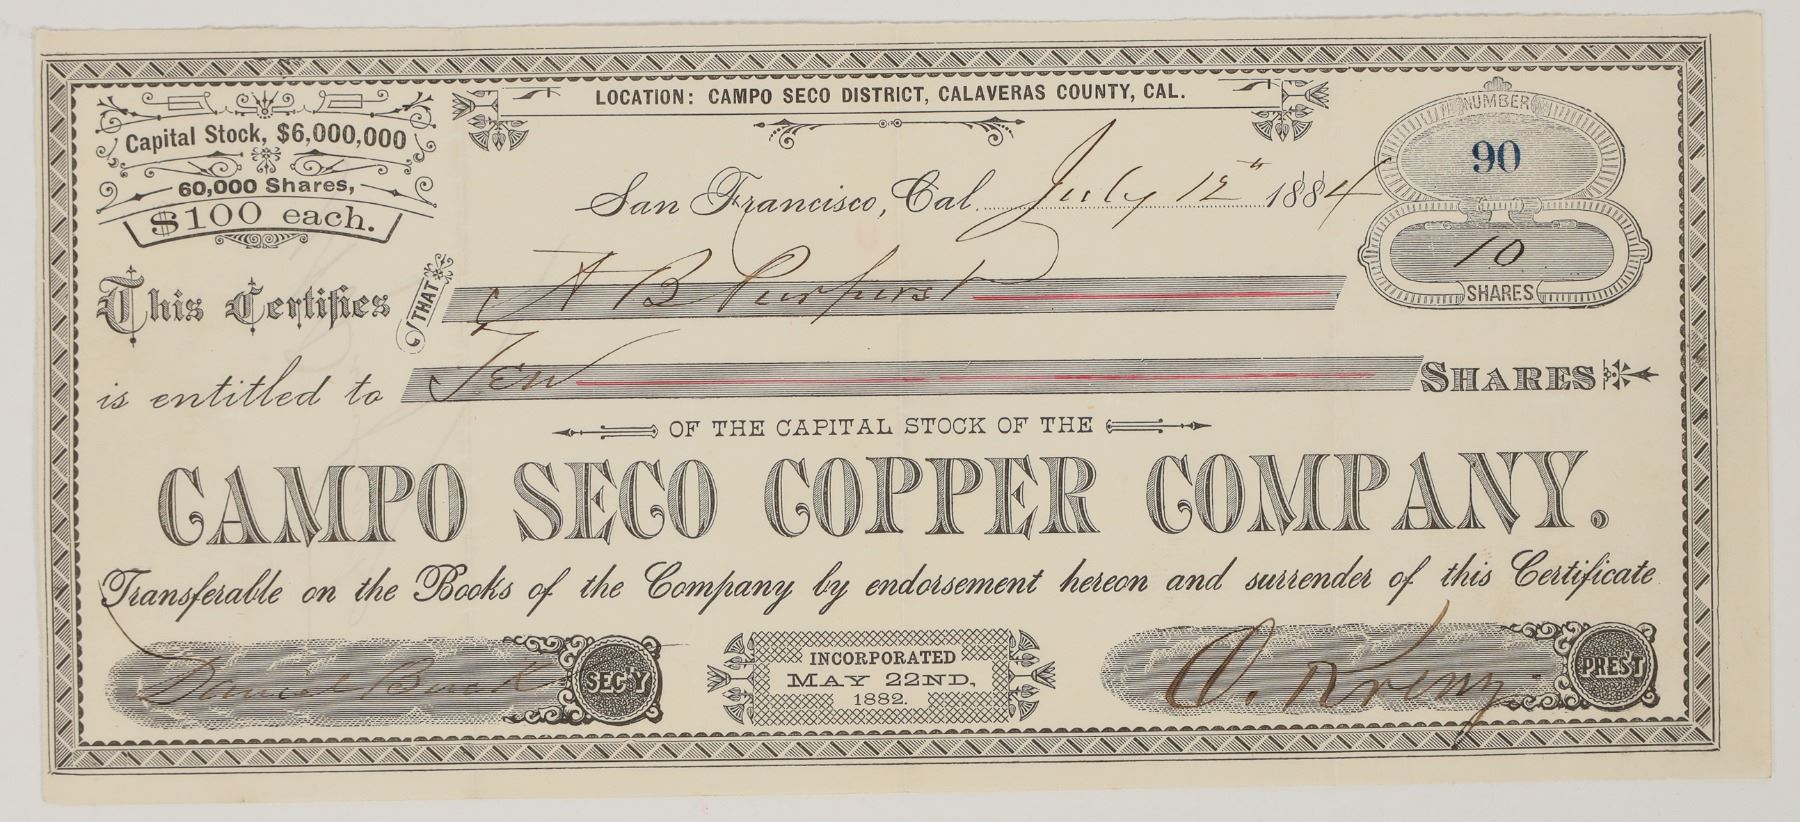 LOCATION: CAMPO SECO DISTRICT, CALAVERAS COUNTY, CAL.
Capital Stock, $6,000,000
60,000 Shares,
$100 each.
NUMBER
90
San Francisco, Cal. July 12th 1884
10
SHARES
This Certifies THAT A B Purfurst
is entitled to Ten SHARES
OF THE CAPITAL STOCK OF THE
CAMPO SECO COPPER COMPANY.
Transferable on the Books of the Company by endorsement hereon and surrender of this Certificate
Daniel Buck SEC'Y
INCORPORATED
MAY 22ND,
1882.
O. PRES'T